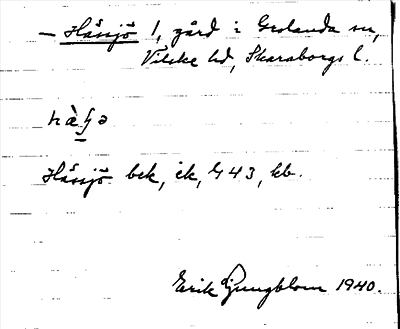 – Hässjö 1, gård i Grolanda sn,
Vilske hd, Skaraborgs l.
Hässjö bek, ek, 443, kb.
Erik Ljungblom 1940.